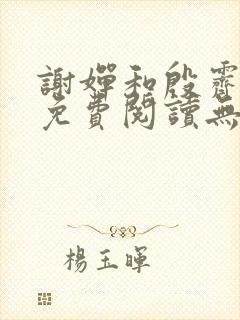 謝嬋和殷霽
免費閱讀無
楊玉暉